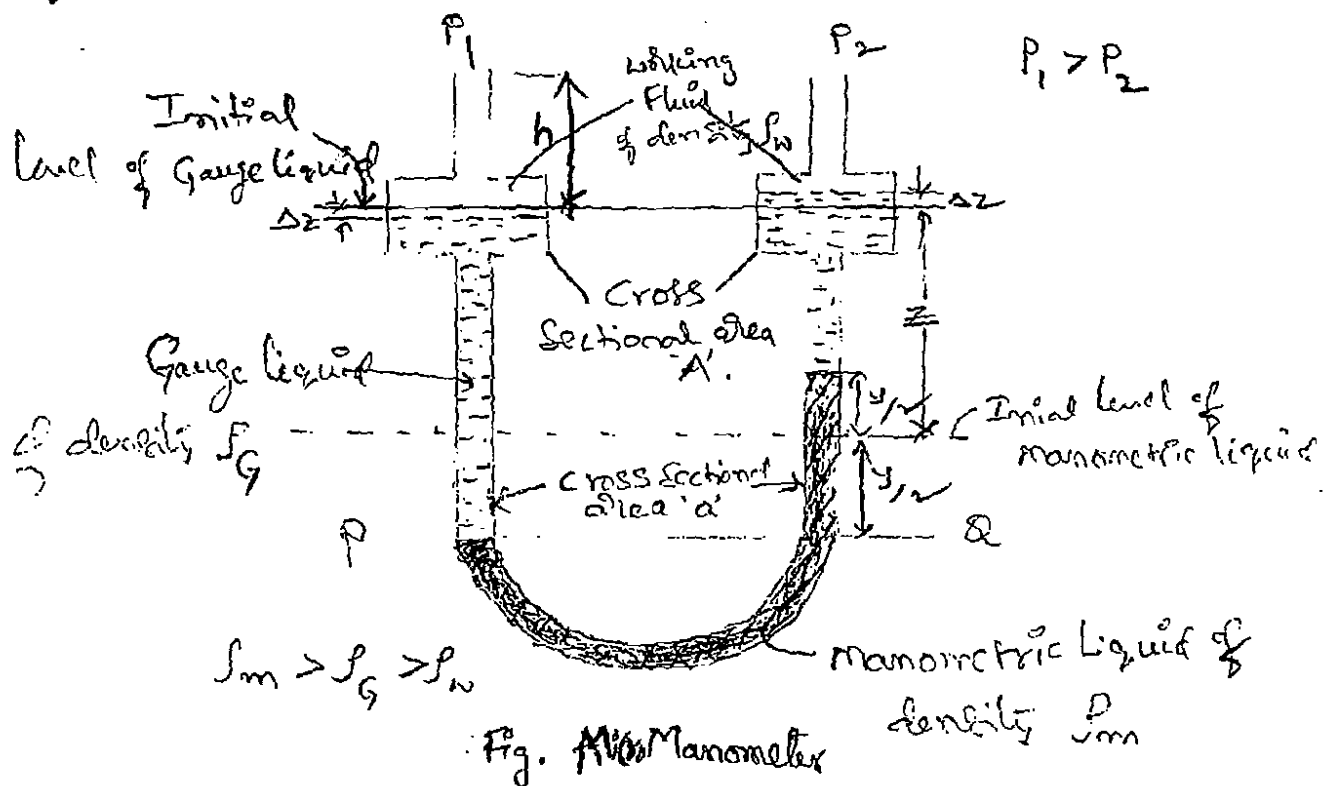 P₁
P₂
P₁ > P₂
working
Fluid
of density ρw
h
Initial
level of Gauge liquid
Δz
Δz
Cross
Sectional area
'A'.
z
Gauge liquid
of density ρG
y/2
Inial level of
manometric liquid
cross sectional
area 'a'
y/2
P
Q
ρm > ρG > ρw
manometric Liquid of
density ρm
Fig. Manometer